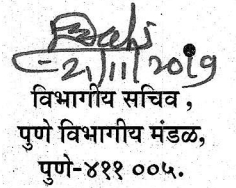 21/11/2019
विभागीय सचिव,
पुणे विभागीय मंडळ,
पुणे-४११ ००५.